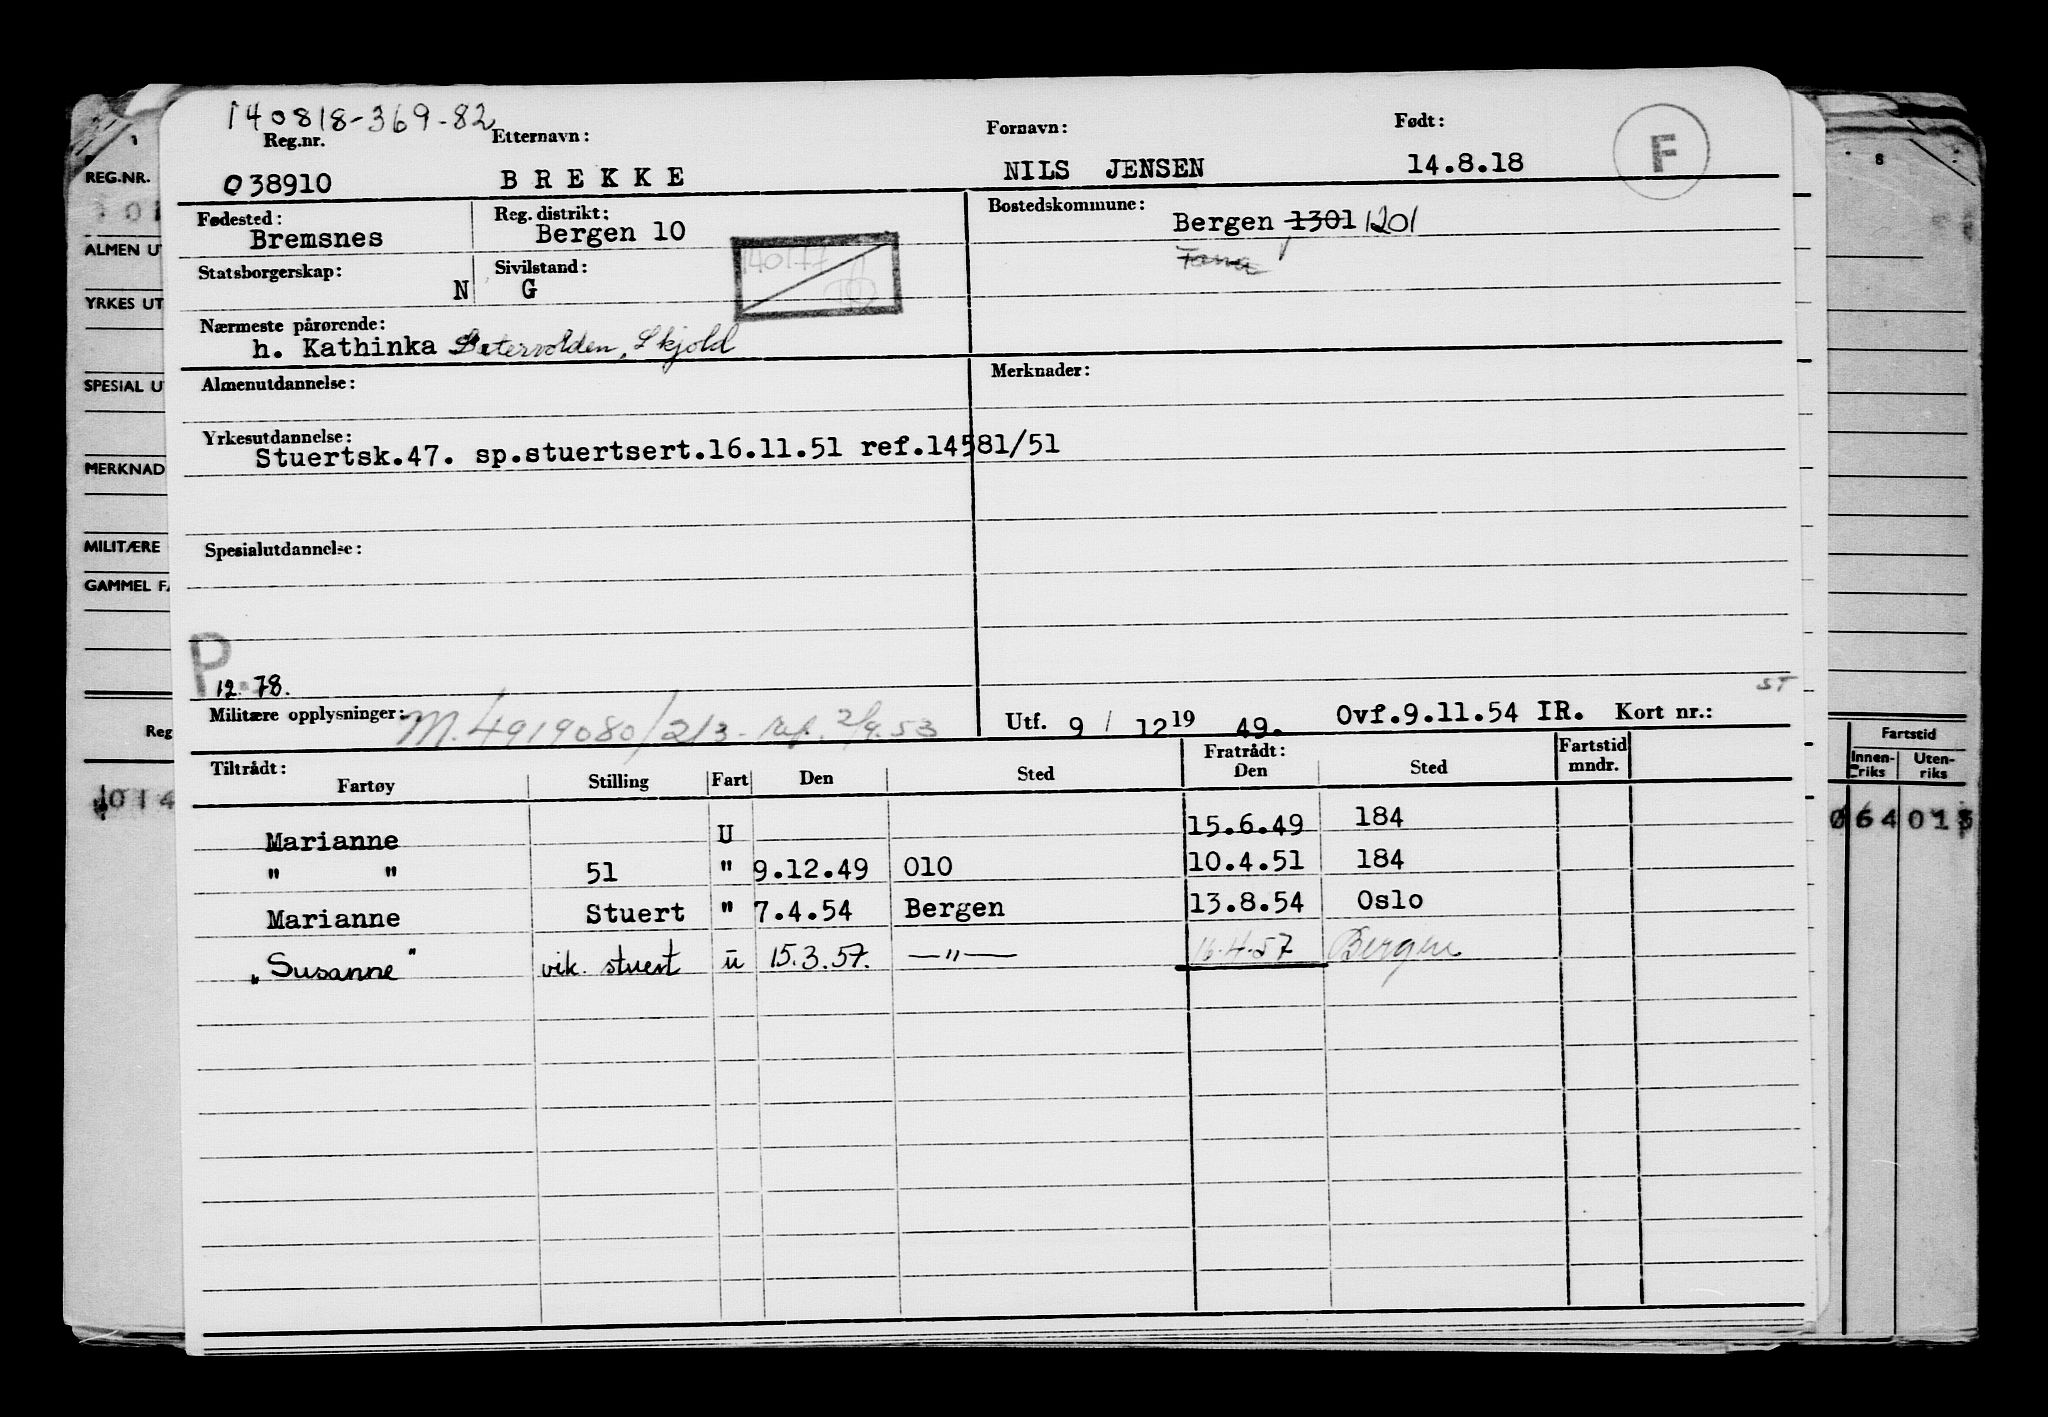 140818-369-82
Reg.nr. Etternavn: Fornavn: Født:
038910 BREKKE NILS JENSEN 14.8.18 F
Fødested: Reg. distrikt: Bostedskommune:
Bremsnes Bergen 10 Bergen 1301 1201
Tana
Statsborgerskap: Sivilstand:
N G
140177
Nærmeste pårørende:
h. Kathinka Sætervolden, Skjold
Almenutdannelse: Merknader:
Yrkesutdannelse:
Stuertsk.47. sp.stuertsert.16.11.51 ref.14581/51
Spesialutdannelse:
P.
12.78.
ST
Militære opplysninger: M.4919080/2/3- ref. 2/9.53 Utf. 9 / 12 19 49. Ovf.9.11.54 IR. Kort nr.:
Tiltrådt: Fratrådt: Fartstid
Fartøy Stilling Fart Den Sted Den Sted mndr.
Marianne U 15.6.49 184
" " 51 " 9.12.49 010 10.4.51 184
Marianne Stuert " 7.4.54 Bergen 13.8.54 Oslo
„Susanne" vik. stuert u 15.3.57. —"— 16.4.57 Bergen
REG.NR.
ALMEN UT
YRKES UT
SPESIAL UT
MERKNAD
MILITÆRE
GAMMEL FA
Reg
014
8
Fartstid
Innen- Uten-
riks riks
064 015